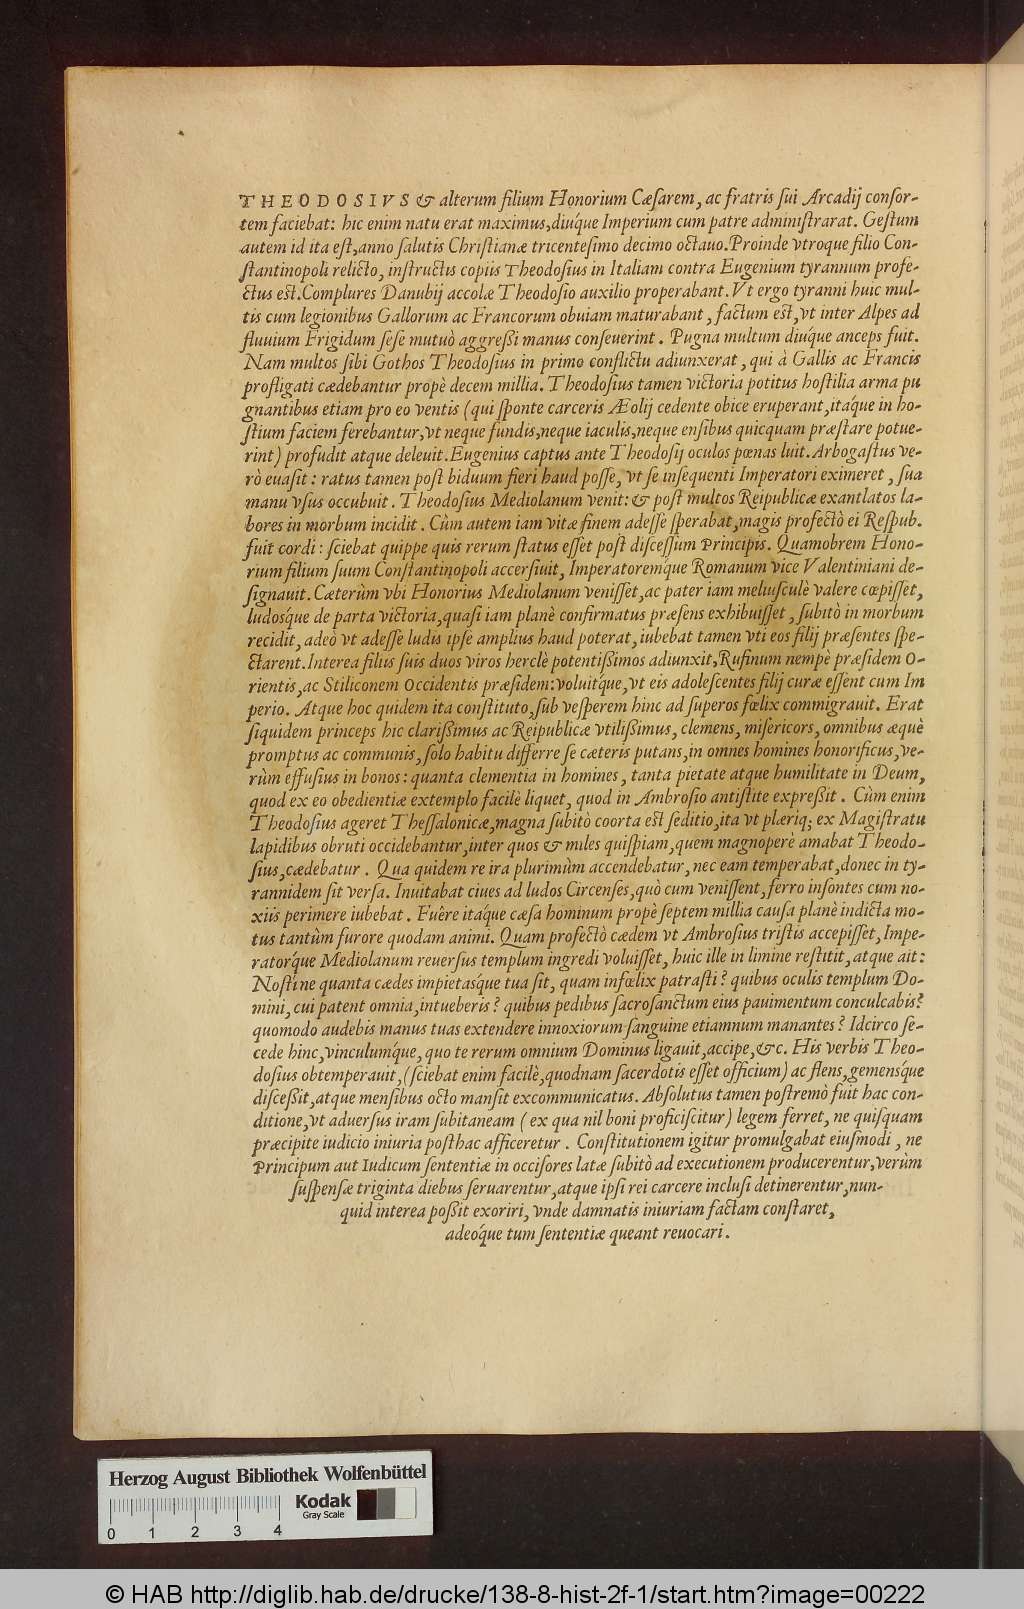 THEODOSIVS & alterum filium Honorium Cæſarem, ac fratris ſui Arcadij conſor-
tem faciebat: hic enim natu erat maximus, diuq́ue Imperium cum patre adminiſtrarat. Geſtum
autem id ita eſt, anno ſalutis Chriſtianæ tricenteſimo decimo octauo. Proinde vtroque filio Con-
ſtantinopoli relicto, inſtructis copiis Theodoſius in Italiam contra Eugenium tyrannum profe-
ctus eſt. Complures Danubij accolæ Theodoſio auxilio properabant. Vt ergo tyranni huic mul-
tis cum legionibus Gallorum ac Francorum obuiam maturabant, factum eſt, vt inter Alpes ad
fluuium Frigidum ſeſe mutuò aggreßi manus conſeuerint. Pugna multum diuq́ue anceps fuit.
Nam multos ſibi Gothos Theodoſius in primo conflictu adiunxerat, qui à Gallis ac Francis
profligati cædebantur propè decem millia. Theodoſius tamen victoria potitus hoſtilia arma pu
gnantibus etiam pro eo ventis (qui ſponte carceris Æolij cedente obice eruperant, itaq́ue in ho-
ſtium faciem ferebantur, vt neque fundis, neque iaculis, neque enſibus quicquam præſtare potue-
rint) profudit atque deleuit. Eugenius captus ante Theodoſij oculos pœnas luit. Arbogaſtus ve-
rò euaſit: ratus tamen poſt biduum fieri haud poſſe, vt ſe inſequenti Imperatori eximeret, ſua
manu vſus occubuit. Theodoſius Mediolanum venit: & poſt multos Reipublicæ exantlatos la-
bores in morbum incidit. Cùm autem iam vitæ finem adeſſe ſperabat, magis profectò ei Reſpub.
fuit cordi: ſciebat quippe quis rerum ſtatus eſſet poſt diſceſſum Principis. Quamobrem Hono-
rium filium ſuum Conſtantinopoli accerſiuit, Imperatoremq́ue Romanum vice Valentiniani de-
ſignauit. Cæterùm vbi Honorius Mediolanum veniſſet, ac pater iam meliuſculè valere cœpiſſet,
ludosq́ue de parta victoria, quaſi iam planè confirmatus præſens exhibuiſſet, ſubitò in morbum
recidit, adeò vt adeſſe ludis ipſe amplius haud poterat, iubebat tamen vti eos filij præſentes ſpe-
ctarent. Interea filius ſuis duos viros herclè potentißimos adiunxit, Rufinum nempè præſidem O-
rientis, ac Stiliconem Occidentis præſidem: voluitq́ue, vt eis adoleſcentes filij curæ eſſent cum Im
perio. Atque hoc quidem ita conſtituto, ſub veſperem hinc ad ſuperos fœlix commigrauit. Erat
ſiquidem princeps hic clarißimus ac Reipublicæ vtilißimus, clemens, miſericors, omnibus æquè
promptus ac communis, ſolo habitu differre ſe cæteris putans, in omnes homines honorificus, ve-
rùm effuſius in bonos: quanta clementia in homines, tanta pietate atque humilitate in Deum,
quod ex eo obedientiæ extemplo facilè liquet, quod in Ambroſio antiſtite expreßit. Cùm enim
Theodoſius ageret Theſſalonicæ, magna ſubitò coorta eſt ſeditio, ita vt plæriq; ex Magiſtratu
lapidibus obruti occidebantur, inter quos & miles quiſpiam, quem magnoperè amabat Theodo-
ſius, cædebatur. Qua quidem re ira plurimùm accendebatur, nec eam temperabat, donec in ty-
rannidem ſit verſa. Inuitabat ciues ad ludos Circenſes, quò cum veniſſent, ferro inſontes cum no-
xiis perimere iubebat. Fuêre itaq́ue cæſa hominum propè ſeptem millia cauſa planè indicta mo-
tus tantùm furore quodam animi. Quam profectò cædem vt Ambroſius triſtis accepiſſet, Impe-
ratorq́ue Mediolanum reuerſus templum ingredi voluiſſet, huic ille in limine reſtitit, atque ait:
Noſti ne quanta cædes impietasq́ue tua ſit, quam infœlix patraſti? quibus oculis templum Do-
mini, cui patent omnia, intueberis? quibus pedibus ſacroſanctum eius pauimentum conculcabis?
quomodo audebis manus tuas extendere innoxiorum ſanguine etiamnum manantes? Idcirco ſe-
cede hinc, vinculumq́ue, quo te rerum omnium Dominus ligauit, accipe, &c. His verbis Theo-
doſius obtemperauit, (ſciebat enim facilè, quodnam ſacerdotis eſſet officium) ac flens, gemensq́ue
diſceßit, atque menſibus octo manſit excommunicatus. Abſolutus tamen poſtremò fuit hac con-
ditione, vt aduerſus iram ſubitaneam (ex qua nil boni proficiſcitur) legem ferret, ne quiſquam
præcipite iudicio iniuria poſthac afficeretur. Conſtitutionem igitur promulgabat eiuſmodi, ne
Principum aut Iudicum ſententiæ in occiſores latæ ſubitò ad executionem producerentur, verùm
ſuſpenſæ triginta diebus ſeruarentur, atque ipſi rei carcere incluſi detinerentur, nun-
quid interea poßit exoriri, vnde damnatis iniuriam factam conſtaret,
adeoq́ue tum ſententiæ queant reuocari.
Herzog August Bibliothek Wolfenbüttel
Kodak
Gray Scale
0 1 2 3 4
© HAB http://diglib.hab.de/drucke/138-8-hist-2f-1/start.htm?image=00222